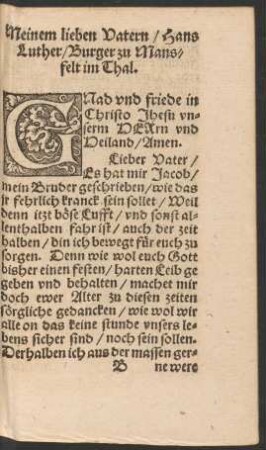 Meinem lieben Vatern / Hans
Luther / Burger zu Mans/
felt im Thal.
GNad vnd friede in
Christo Jhesu vn-
serm HErrn vnd
Heiland / Amen.
Lieber Vater /
Es hat mir Jacob /
mein Bruder geschrieben / wie das
jr fehrlich kranck sein sollet / Weil
denn itzt böse Lufft / vnd sonst al-
lenthalben fahr ist / auch der zeit
halben / bin ich bewegt für euch zu
sorgen. Denn wie wol euch Gott
bisher einen festen / harten Leib ge
geben vnd behalten / machet mir
doch ewer Alter zu diesen zeiten
sörgliche gedancken / wie wol wir
alle on das keine stunde vnsers le-
bens sicher sind / noch sein sollen.
Derhalben ich aus der massen ger-
B ne were